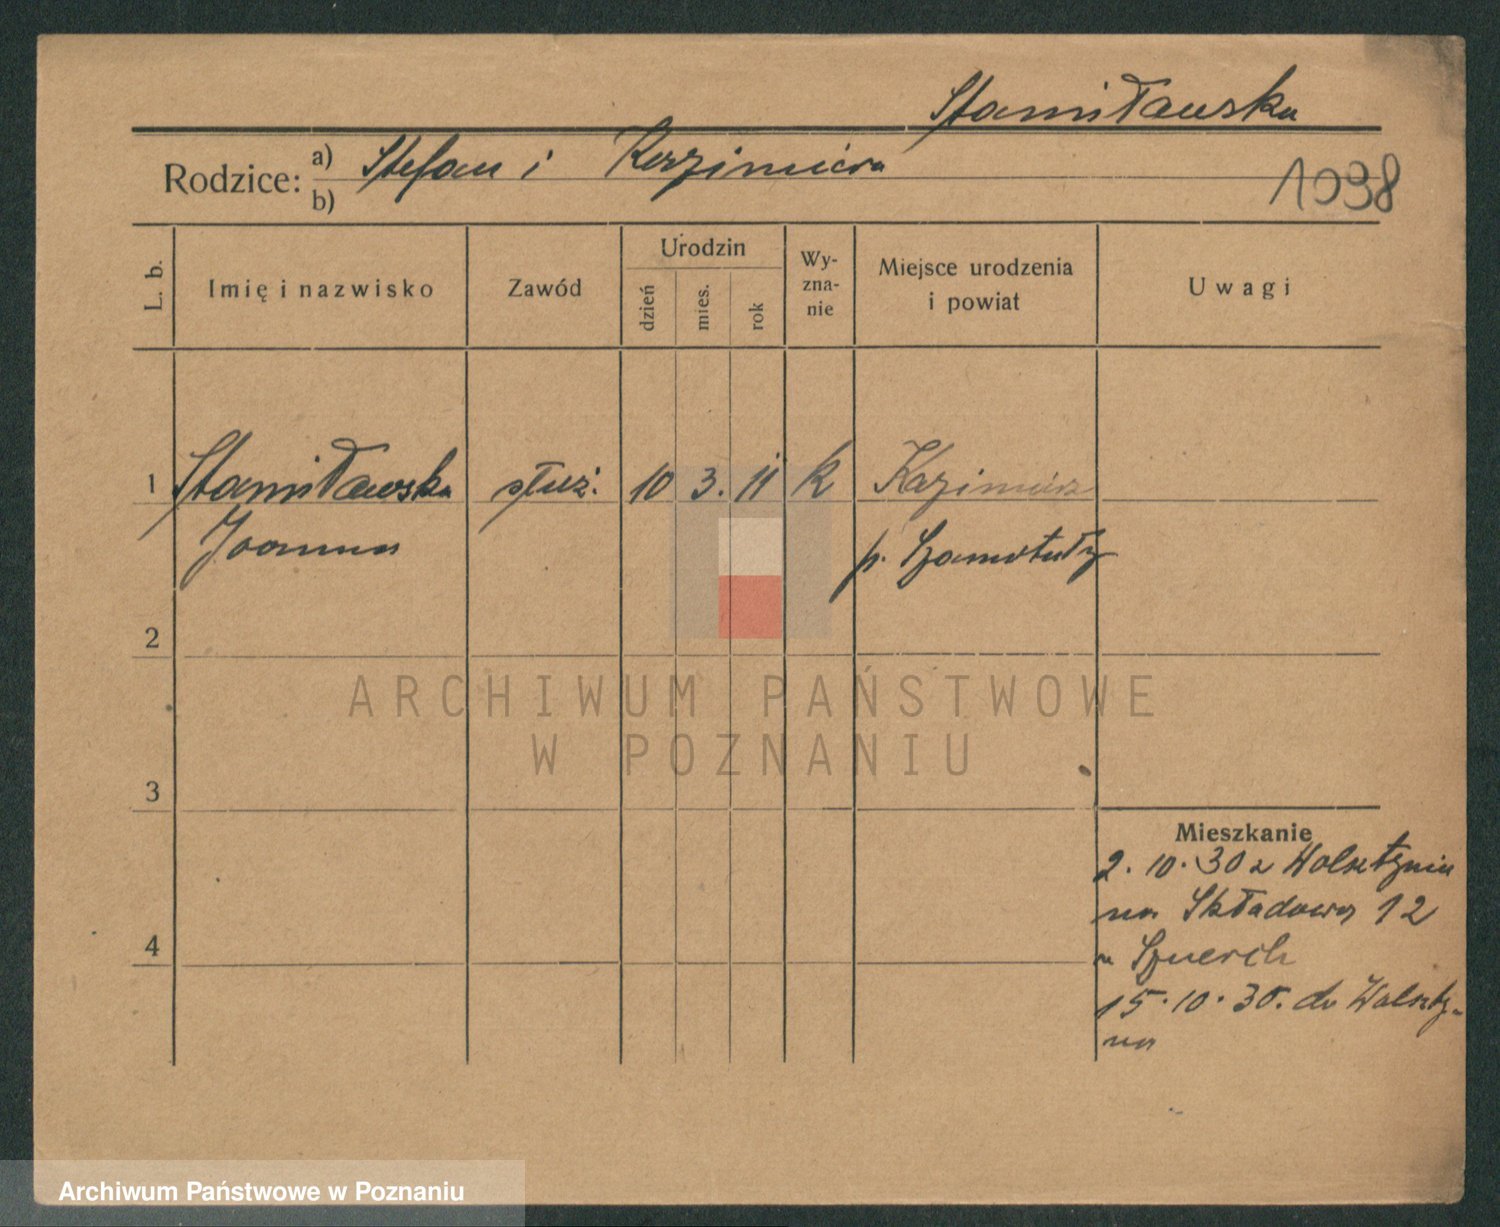 Stamiławska
Rodzice: a) Stefan i Kazimiera
b)
1098
L. b.
Imię i nazwisko
Zawód
Urodzin
dzień
mies.
rok
Wy-
zna-
nie
Miejsce urodzenia
i powiat
Uwagi
1 Stamiławska służ. 10 3. 11 k Kazimierz
Joanna p. Szamotuły
2
3
4
Mieszkanie
2. 10. 30 z Wolsztynia
na Składowa 12
u
15. 10. 30. do Wolszty-
na
ARCHIWUM PAŃSTWOWE
W POZNANIU
Archiwum Państwowe w Poznaniu